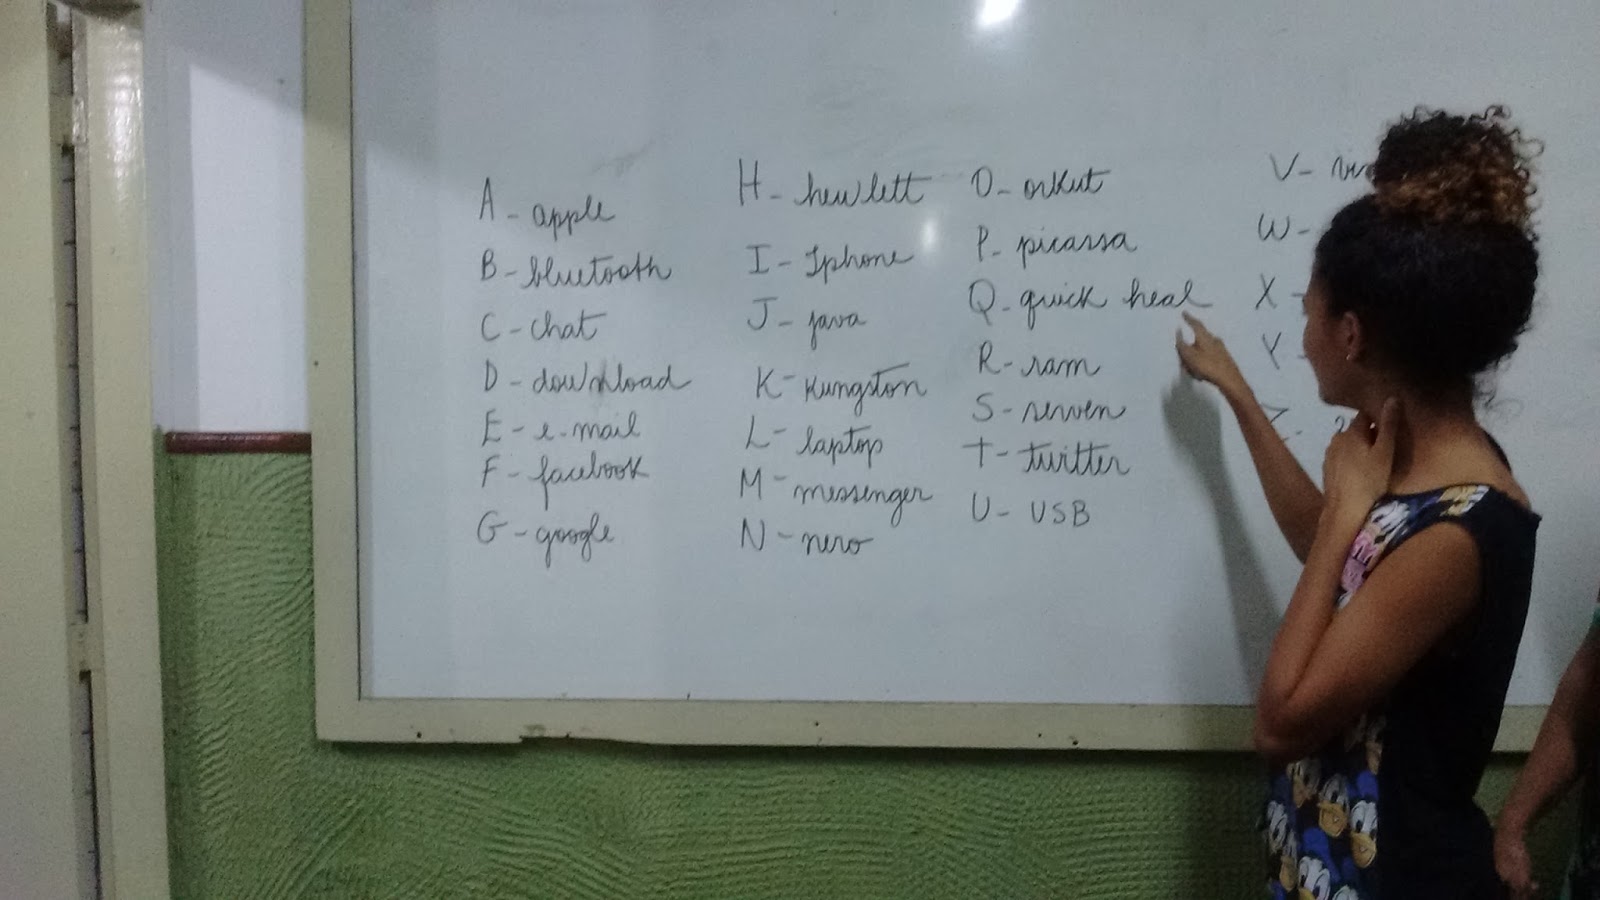 A - apple
B - bluetooth
C - chat
D - download
E - e-mail
F - facebook
G - google
H - hewlett
I - Iphone
J - java
K - kungston
L - laptop
M - messenger
N - nero
O - orkut
P - picassa
Q - quick heal
R - ram
S - server
T - twitter
U - USB
V -
W -
X -
Y -
Z -